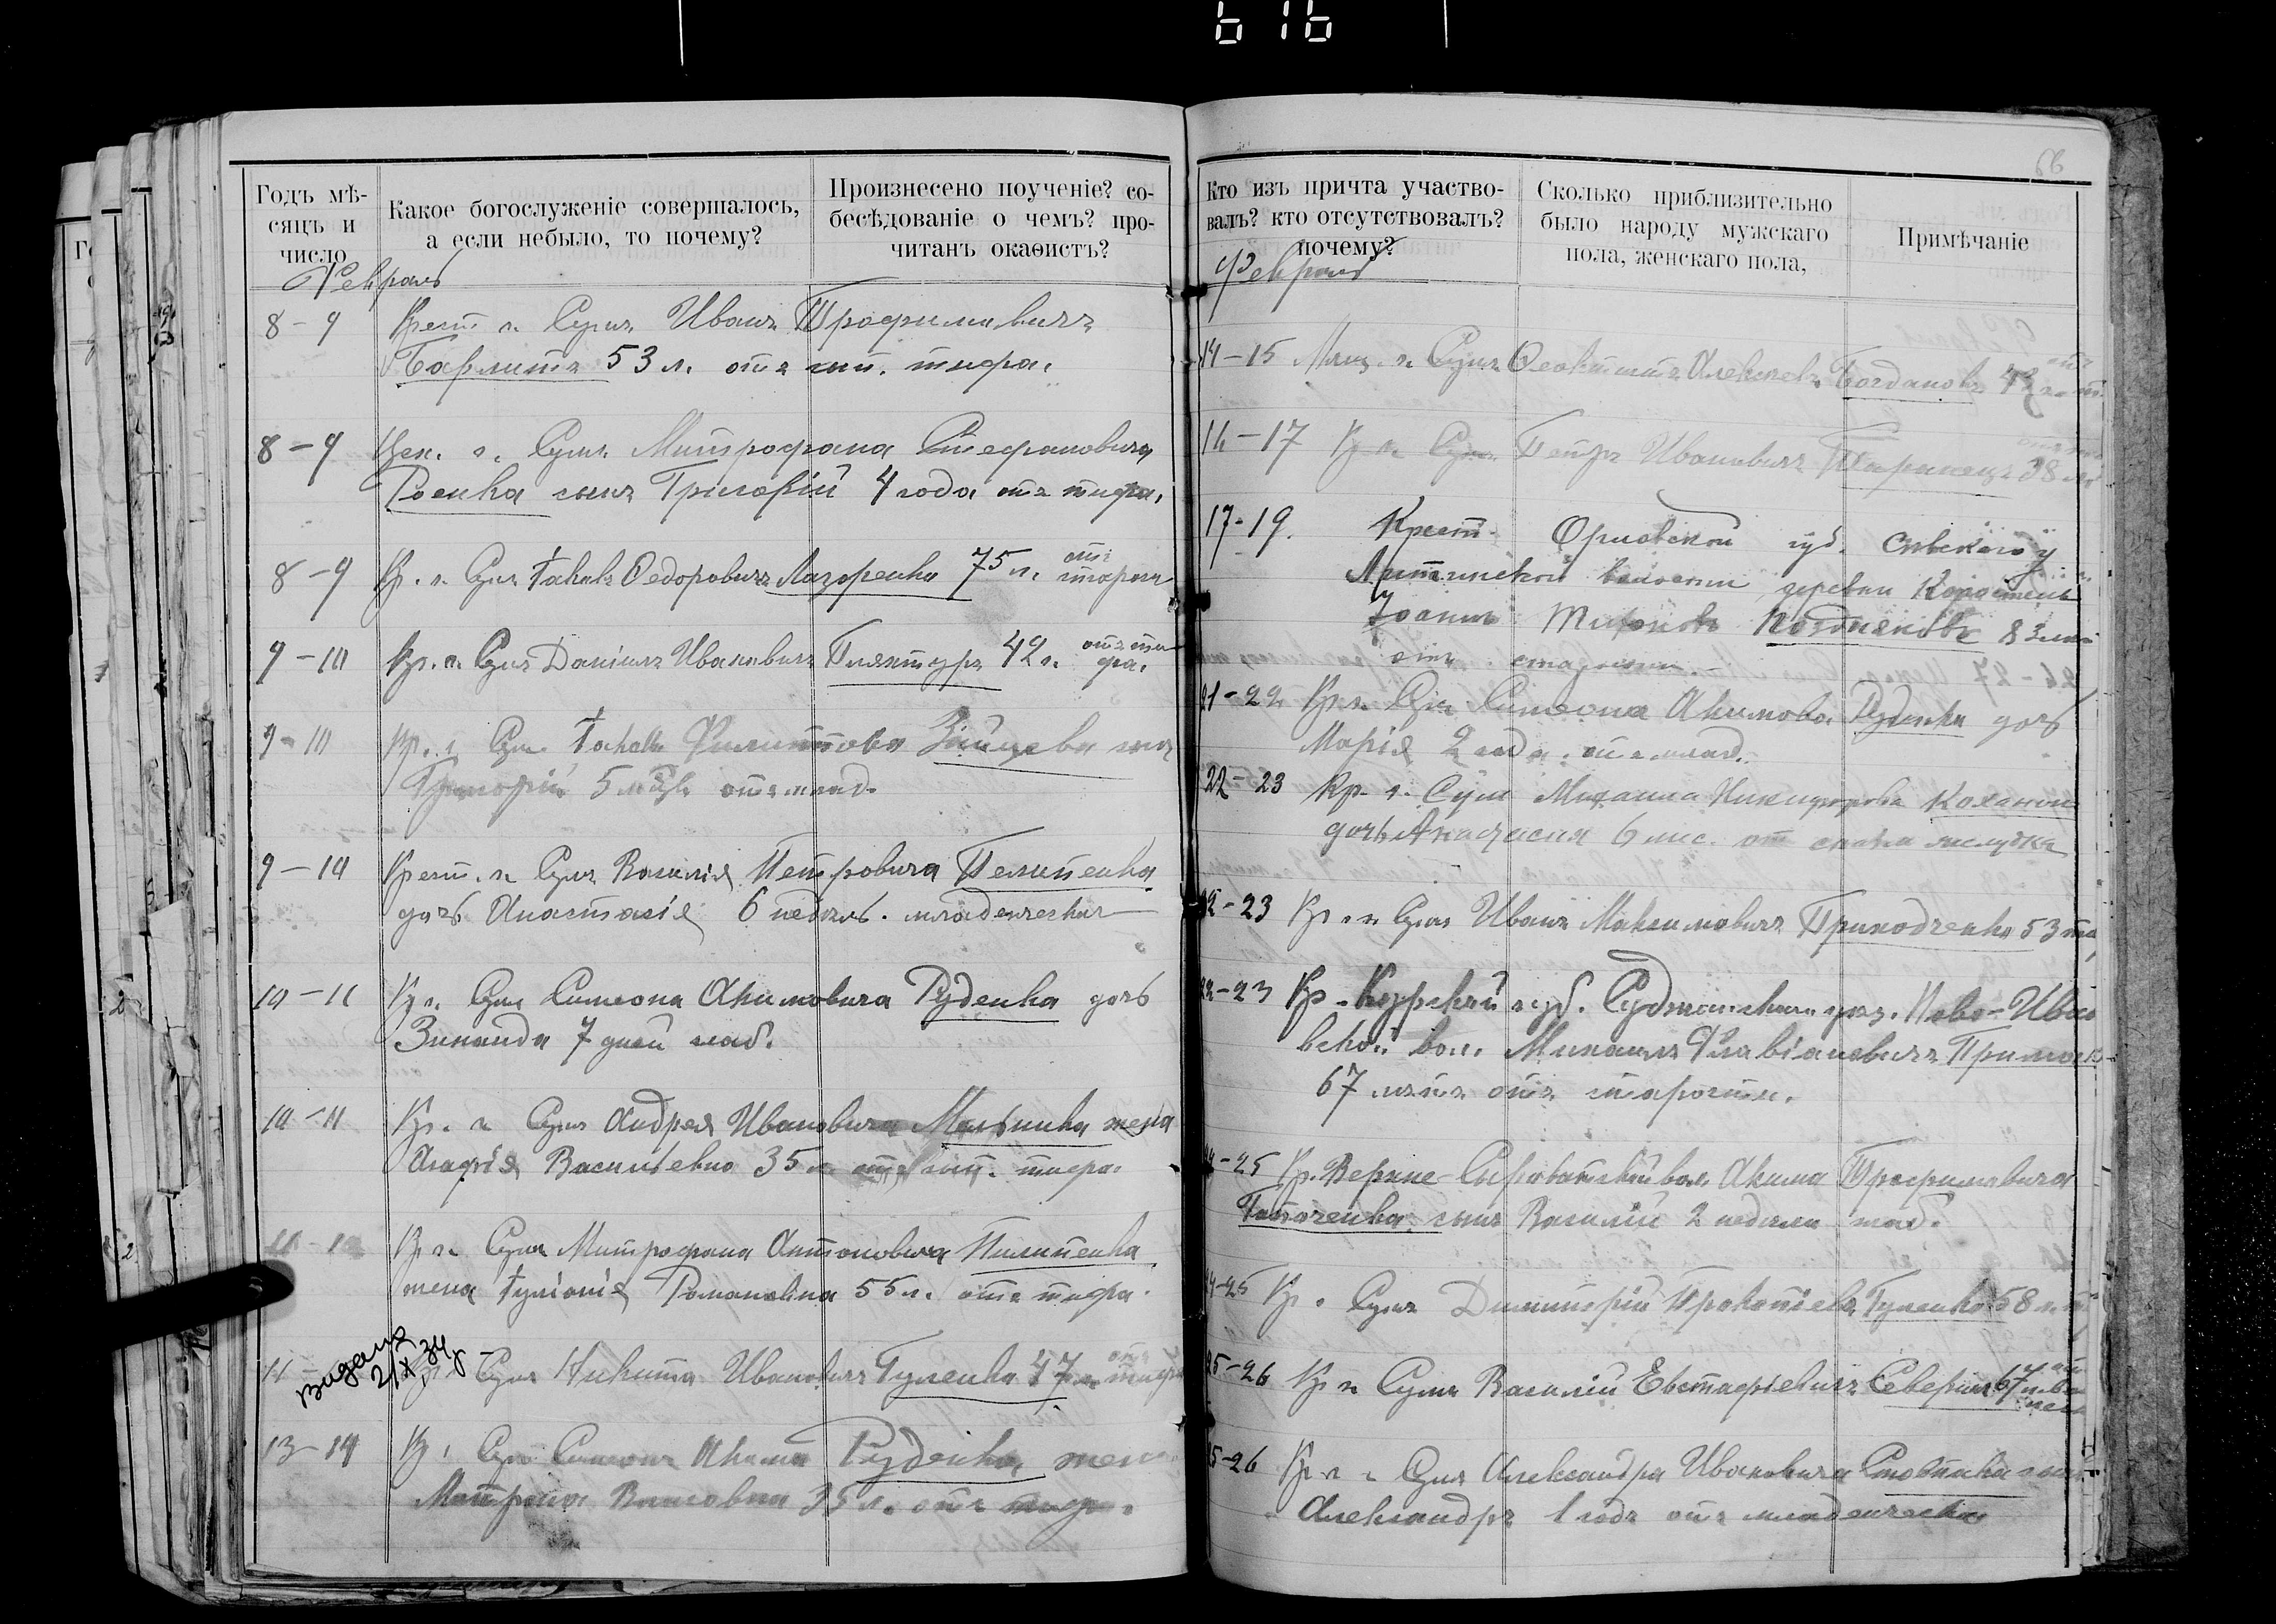 616
Годъ мѣ-
сяцъ и
число
Какое богослуженіе совершалось,
а если небыло, то почему?
Произнесено поученіе? со-
бесѣдованіе о чемъ? про-
читанъ окаѳистъ?
Февраль
8-9 Крест. г. Сумъ Иванъ Трофимовичъ
53 л. отъ сып. тифа.
8-9 г. Сумъ Митрофана Стефановича
Роенка сынъ Григорій 4 года отъ тифа.
8-9 Кр. г. Сумъ Іаковъ Ѳедоровичъ Лазоренко 75 л. отъ
старости
9-10 Кр. г. Сумъ Даніилъ Ивановичъ 42 л. отъ ти
фа.
9-10 Кр. г. Сумъ Іакова Филиппова Зайцева сынъ
Григорій 5 мѣс. отъ млад.
9-10 Крест. г. Сумъ Василія Петровича Пелипенка
дочь Анастасія 6 недѣль. младенческ
10-11 Кр. г. Сумъ Симеона Акимовича Руденка дочь
Зинаида 7 дней слаб.
10-11 Кр. г. Сумъ Андрея Ивановича жена
Агафія Васильевна 35 л. отъ сып. тифа.
Кр. г. Сумъ Митрофана Антоновича Пилипенка
жена Іуліанія Романовна 55 л. отъ тифа.
видана
21 X 34
11- Кр. г. Сумъ Никита Ивановичъ Гуленко 47 л. отъ
тифа
13-14 Кр. г. Сумъ Симеонъ Акима Руденка, жена
Матрона 35 л. отъ тифа.
66
Кто изъ причта участво-
валъ? кто отсутствовалъ?
почему?
Сколько приблизительно
было народу мужскаго
пола, женскаго пола,
Примѣчаніе
Февраль
14-15 Мѣщ. г. Сумъ Ѳеоктистъ Алексѣевъ Богдановъ отъ
16-17 Кр. г. Сумъ Петръ Ивановичъ Таранецъ 38 л.
17-19. Крест. Орловской губ. Сѣвскаго у
волости деревни
Іоаннъ Тихоновъ Поздняковъ 83 лѣт
отъ старости.
21-22 Кр. г. Сумъ Симеона Акимова Руденка дочь
Марія 2 года отъ млад.
22-23 Кр. г. Сум Михаила Никифорова
дочь Анастасия 6 мис. от желудка
22-23 Кр. г. Сумъ Иванъ Максимовичъ Приходченко 53
22-23 Кр. Курской губ. Суджанскаго уѣз. Ново-Ива
вской вол. Михаилъ Флавіановичъ
67 лѣтъ отъ старости.
24-25 Кр. Верхне-Сыроватской вол. Акима Трофимовича
сынъ Василій 2 недѣли слаб.
24-25 Кр. г. Сумъ Димитрій Прокопіевъ Гуленко 58 л.
25-26 Кр. г. Сумъ Василій Евстафіевичъ Северинъ 67
25-26 Кр. г. Сумъ Александра Ивановича сынъ
Александръ 1 годъ отъ младенческа